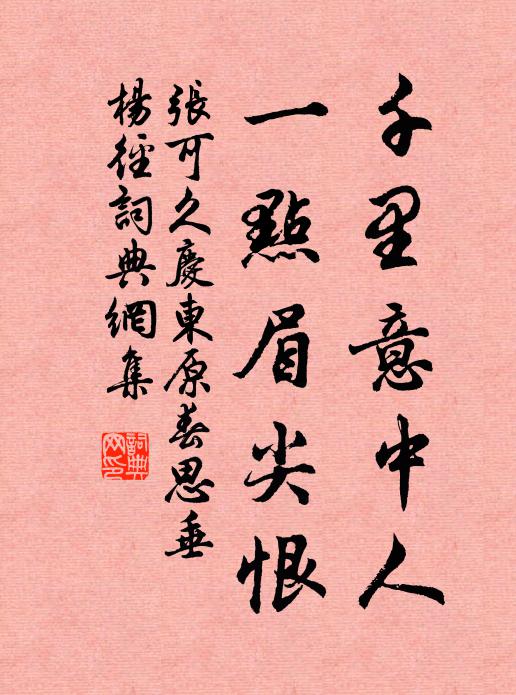 千里意中人
一點眉尖恨
張可久慶東原春思垂
楊徑詞典網集
詞典
网印